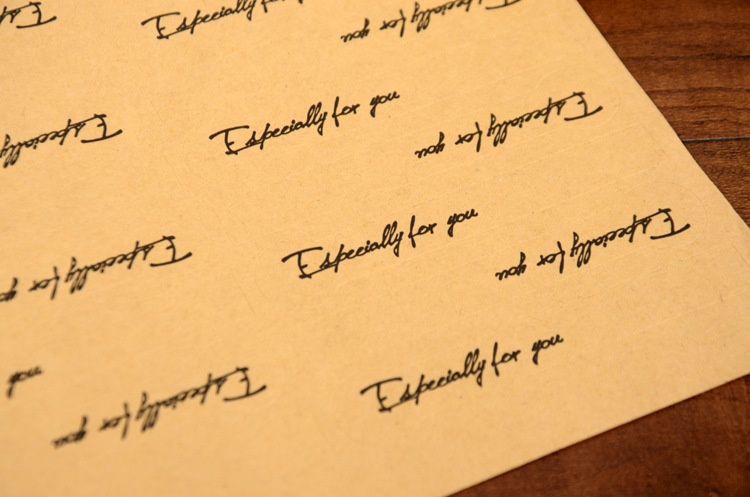 Especially
Especially for you
Especially
Especially for you
Especially for you
Especially for you
Especially for you
Especially for you
you
Especially for you
Especially for you